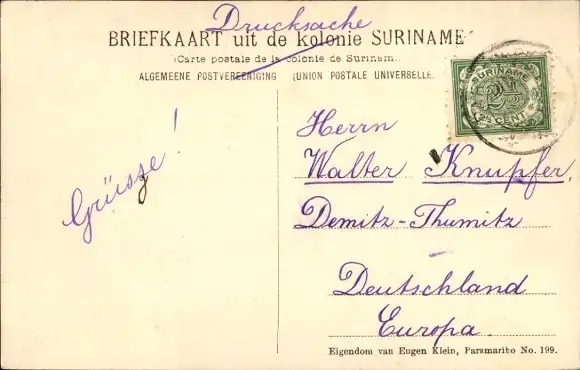 Drucksache
BRIEFKAART uit de kolonie SURINAME
(Carte postale de la colonie de Surinam.
ALGEMEENE POSTVEREENIGING (UNION POSTALE UNIVERSELLE
SURINAME
2½
CENT
Herrn
Walter Knupfer,
Demitz-Thumitz
Deutschland
Europa.
Grüsse!
Eigendom van Eugen Klein, Paramaribo No. 199.